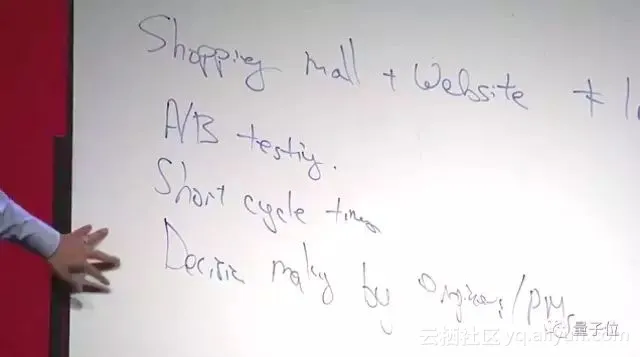 Shopping mall + Website ≠ I
A/B testing.
Short cycle times
Decision making by engineers/PMs
量子位
云栖社区 yq.aliyun.com